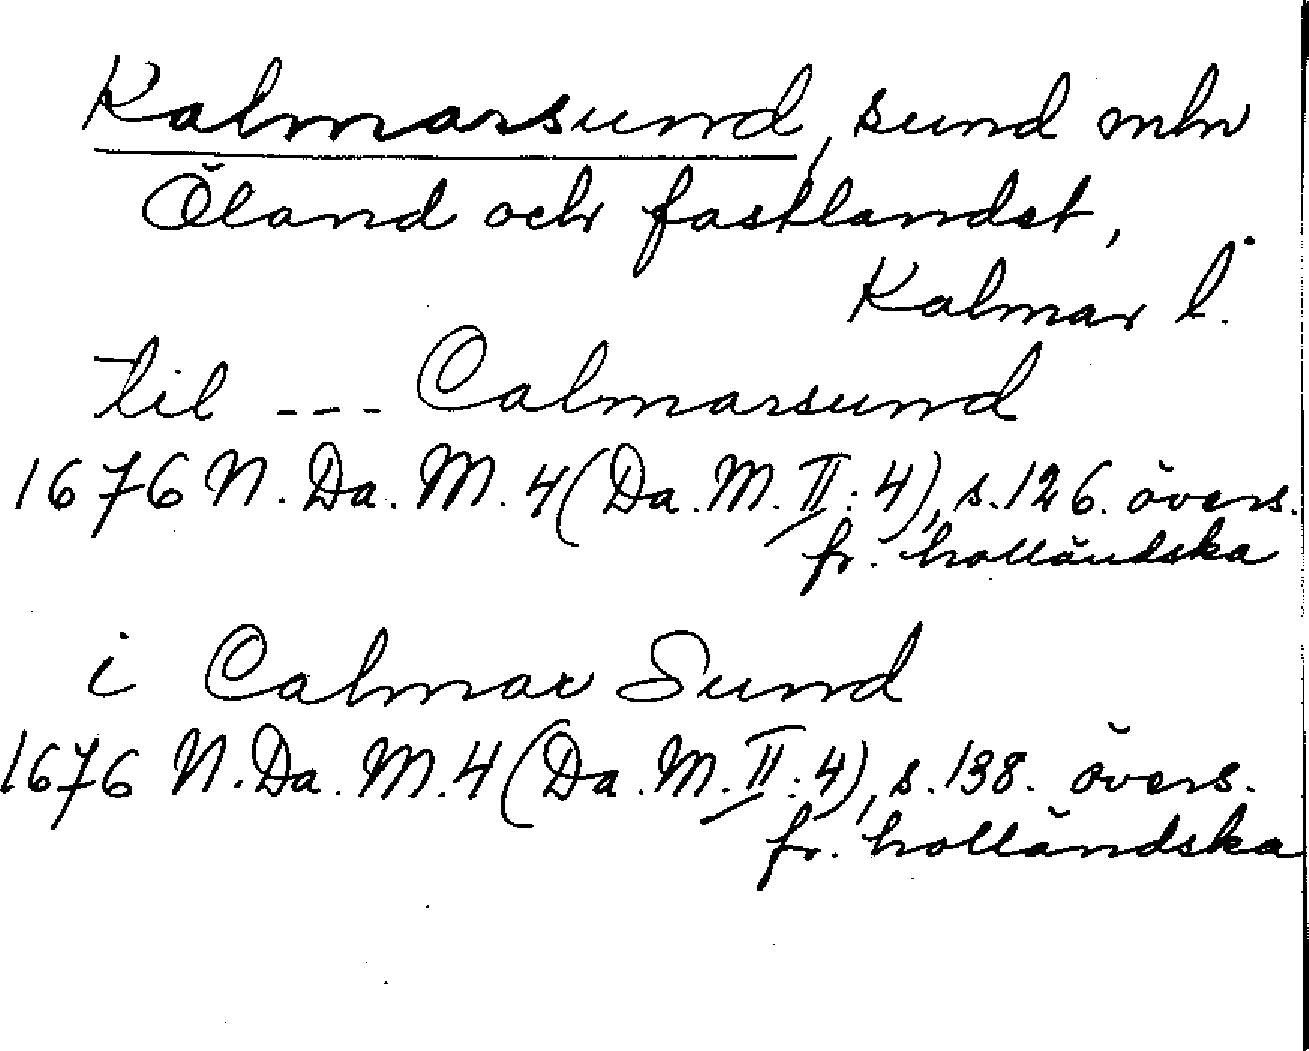 Kalmarsund, sund mln
Öland och fastlandet,
Kalmar l.
til --- Calmarsund
1676 N. Da. M. 4 (Da. M. II: 4), s. 126. övers.
fr. holländska
i Calmar Sund
1676 N. Da. M. 4 (Da. M. II: 4), s. 138. övers.
fr. holländska